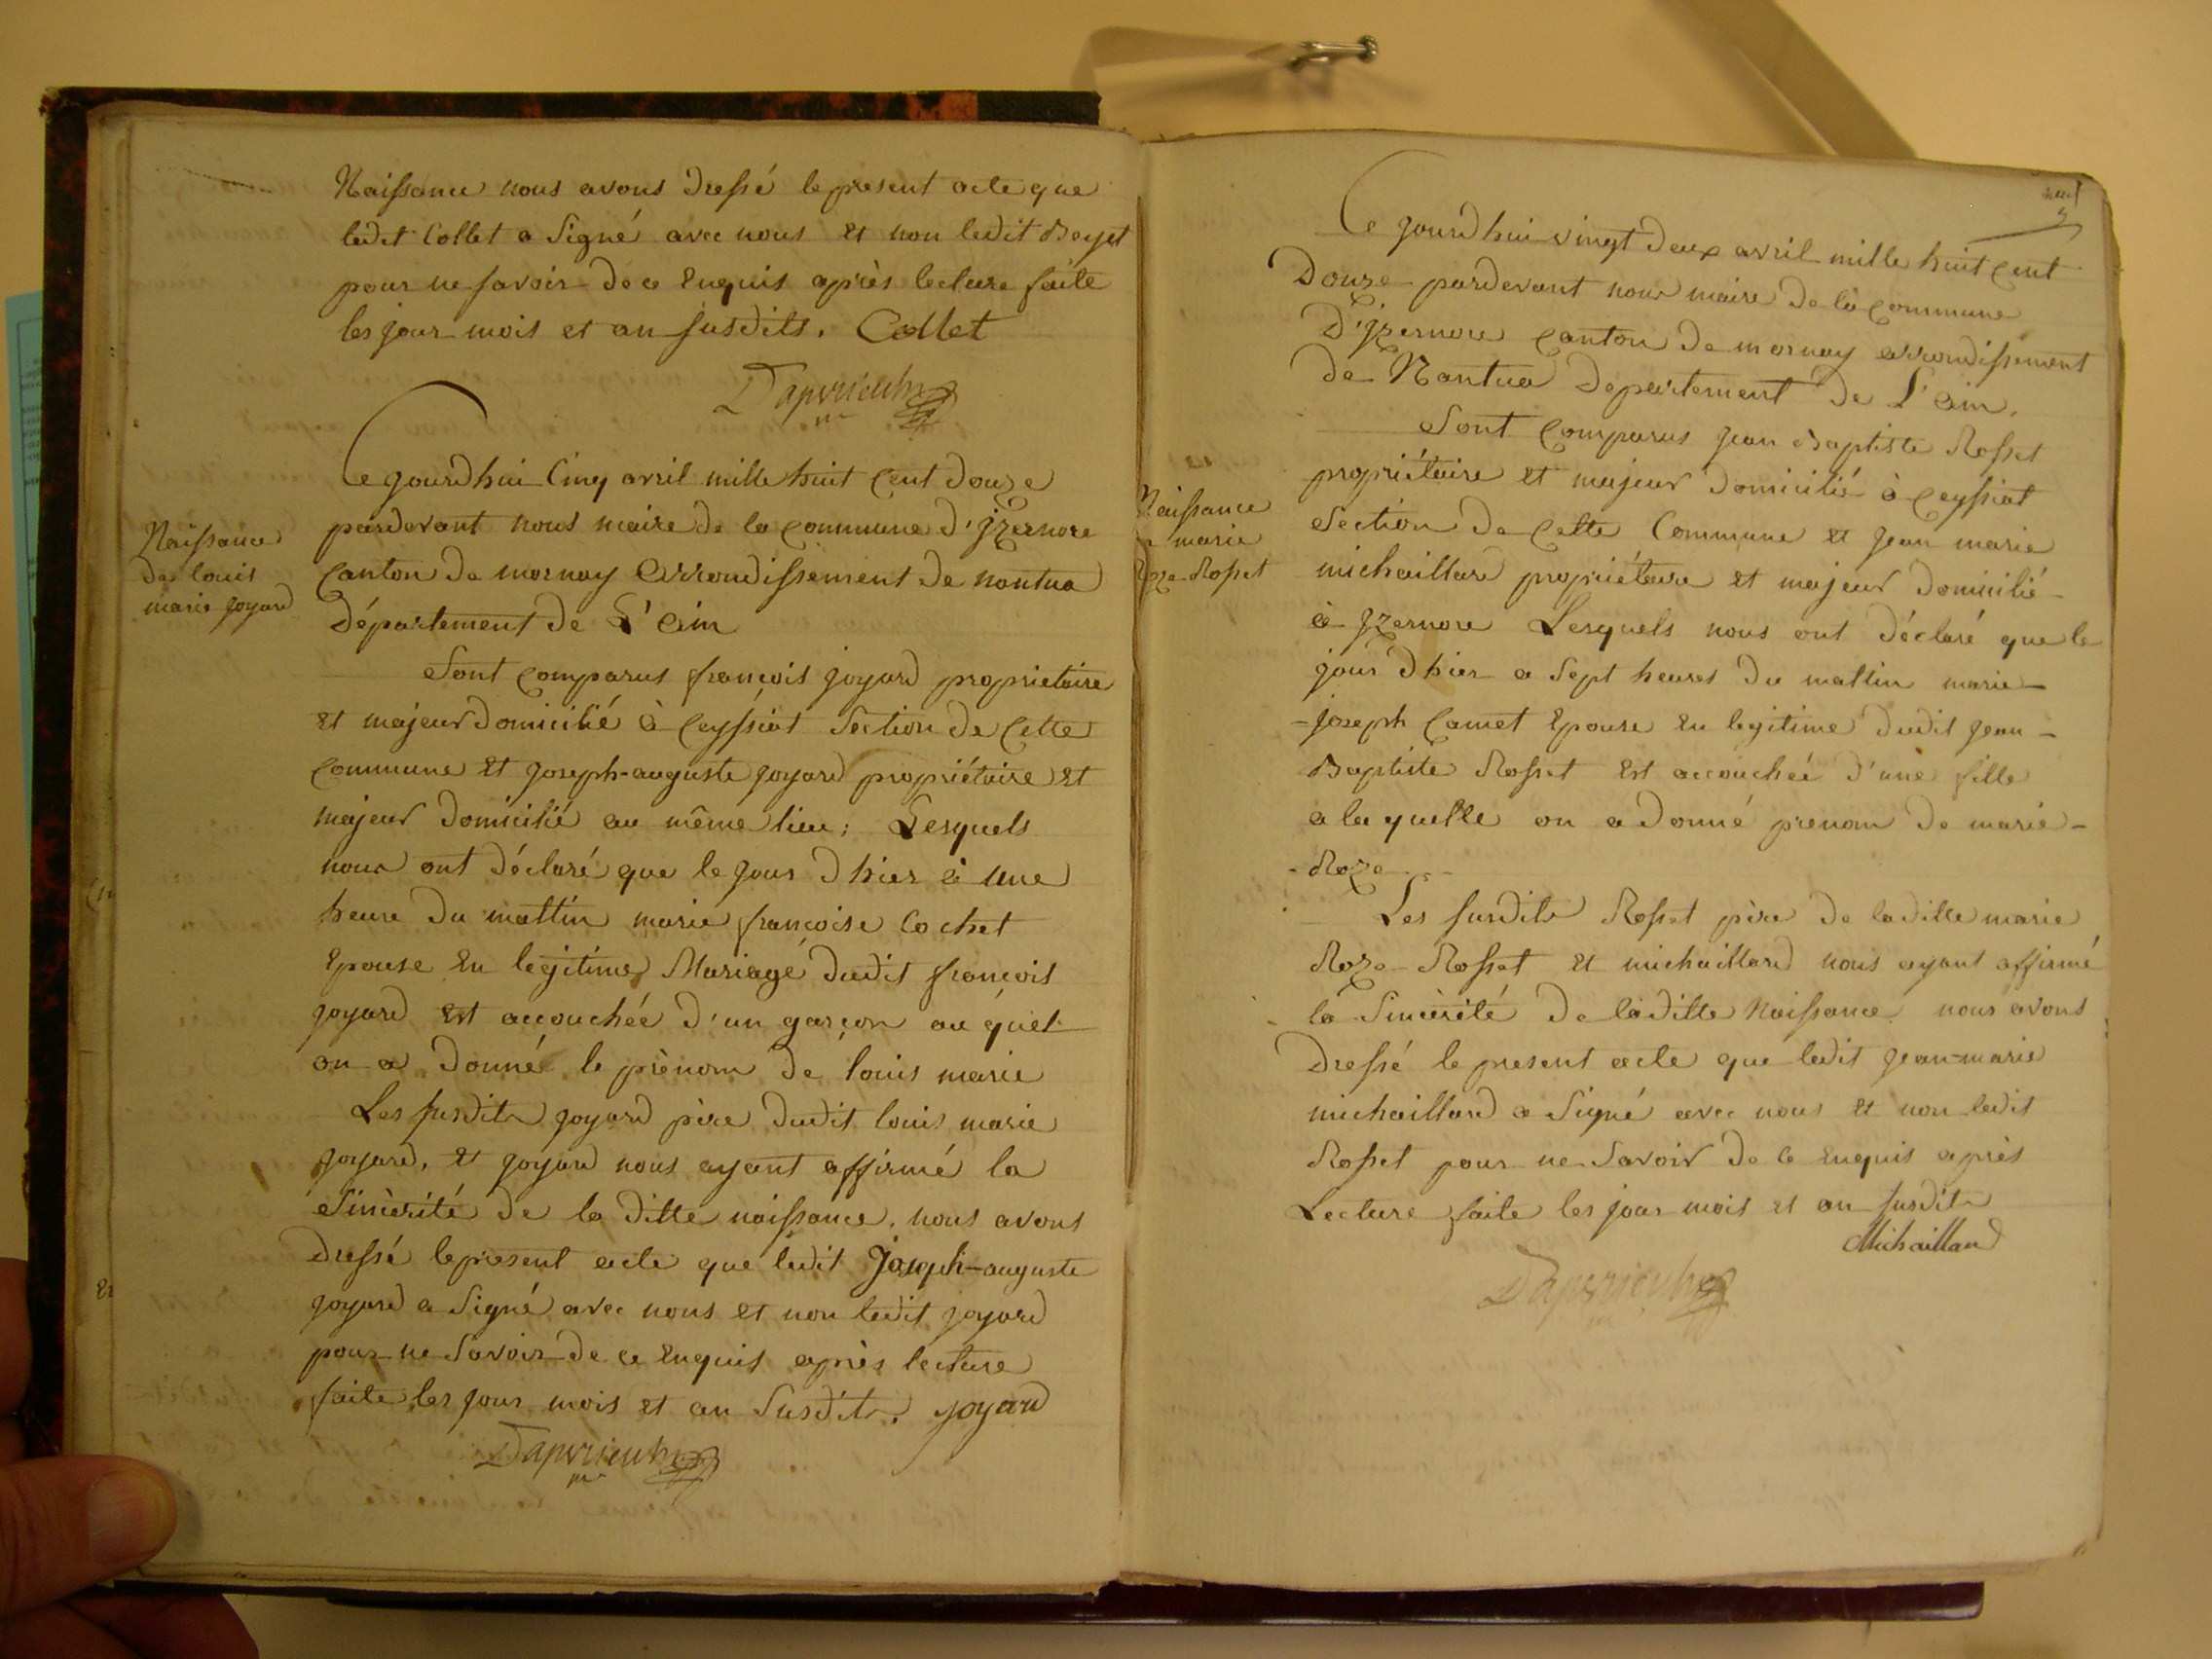 Naissance nous avons dressé le present acte que
ledit Collet a Signé avec nous et non ledit
pour ne savoir de ce Enquis après lecture faite
les jour mois et an susdits. Collet
Ce jourdhui Cinq avril mille huit Cent douze
pardevant nous maire de la Commune d'jzernore
Canton de mornay arrondissement de nantua
Département de L'ain
Naissance
de louis
marie joyard
Sont Comparus françois joyard proprietaire
et majeur domicilié à Ceyssiat Section de Cette
Commune et joseph-auguste joyard propriétaire et
majeur domicilié au même lieu; Lesquels
nous ont déclaré que le jour d hier à une
heure du mattin marie françoise Cochet
Epouse En legitime Mariage dudit françois
joyard Est accouchée d'un garçon au quel
on a donné le prènom de louis marie
Les susdits joyard père dudit louis marie
joyard, et joyard nous ayant affirmé la
Sincèrité de la ditte naissance, nous avons
dressé le present acte que ledit joseph-auguste
joyard a Signé avec nous et non ledit joyard
pour ne Savoir de ce Enquis après lecture
faite les jour mois et an Susdits. joyard
Ce jourdhui vingt deux avril mille huit Cent
Douze pardevant nous maire de la Commune
D'jzernore Canton de mornay arrondissement
de Nantua Departement de L'ain.
Naissance
marie
Roze Rosset
Sont Comparus jean Baptiste Rosset
propriétaire et majeur domicilié à Ceyssiat
Section de Cette Commune et jean marie
michaillard propriétaire et majeur domicilié
à jzernore Lesquels nous ont déclaré que le
jour d hier a Sept heures du mattin marie-
-joseph Camet Epouse En legitime dudit jean-
Baptiste Rosset Est accouchée d'une fille
a la quelle on a donné prenom de marie-
-Roze
Les susdits Rosset père de laditte marie
Roze Rosset et michaillard nous ayant affirmé
la Sincèrité de laditte Naissance nous avons
Dressé le present acte que ledit jean-marie
michaillard a Signé avec nous et non ledit
Rosset pour ne Savoir de ce Enquis après
Lecture faite les jour mois et an susdits
Michaillard